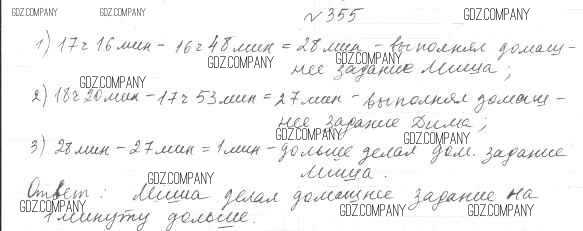 GDZ.COMPANY GDZ.COMPANY №355 GDZ.COMPANY
1) 17ч 16мин - 16ч 48мин = 28мин - выполнял домаш-
GDZ.COMPANY GDZ.COMPANY
нее задание Миша;
GDZ.COMPANY
2) 18ч 20мин - 17ч 53мин = 27мин - выполнял домаш-
нее задание Дима;
GDZ.COMPANY GDZ.COMPANY
3) 28мин - 27мин = 1мин - дольше делал дом. задание
Миша.
GDZ.COMPANY
Ответ: Миша делал домашнее задание на
GDZ.COMPANY GDZ.COMPANY GDZ.COMPANY
1 минуту дольше.